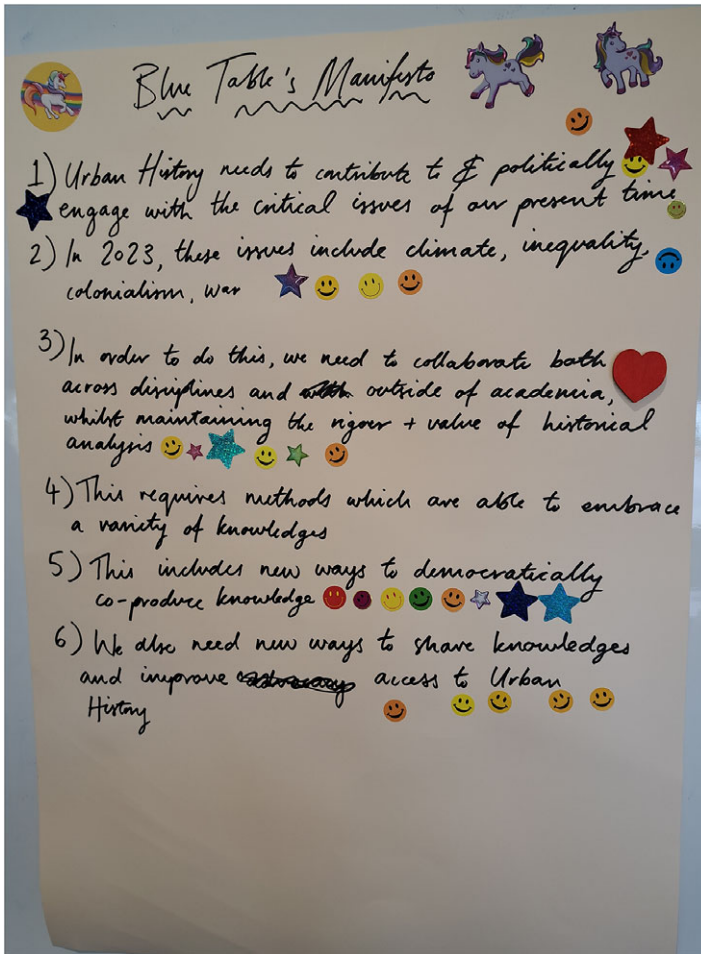 Blue Table's Manifesto
1) Urban History needs to contribute to & politically
engage with the critical issues of our present time
2) In 2023, these issues include climate, inequality,
colonialism, war
3) In order to do this, we need to collaborate both
across disciplines and outside of academia,
whilst maintaining the rigour + value of historical
analysis
4) This requires methods which are able to embrace
a variety of knowledges
5) This includes new ways to democratically
co-produce knowledge
6) We also need new ways to share knowledges
and improve access to Urban
History